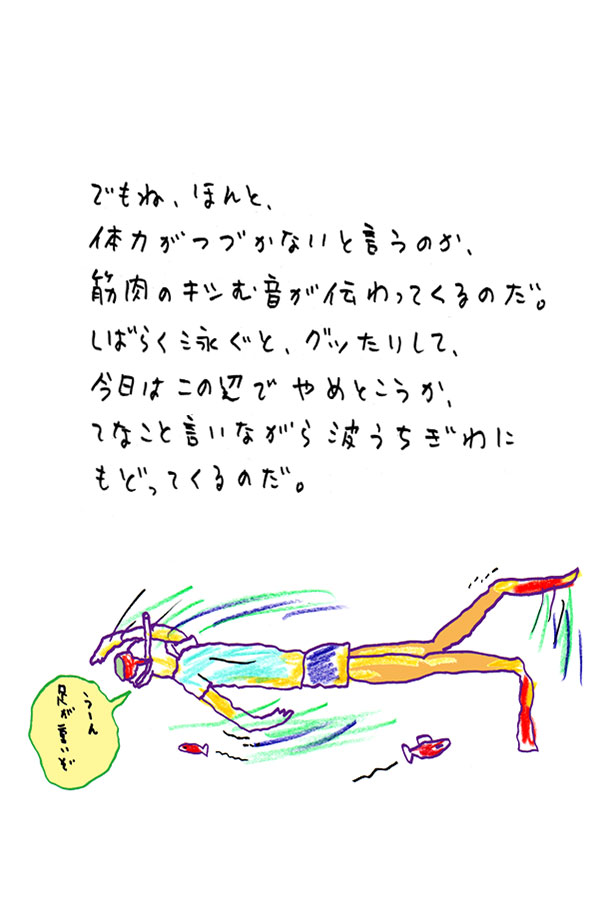 でもね、ほんと、
体力がつづかないと言うのか、
筋肉のキシむ音が伝わってくるのだ。
しばらく泳ぐと、グッたりして、
今日はこの辺でやめとこうか、
てなこと言いながら波うちぎわに
もどってくるのだ。
うーん
足が重いぞ